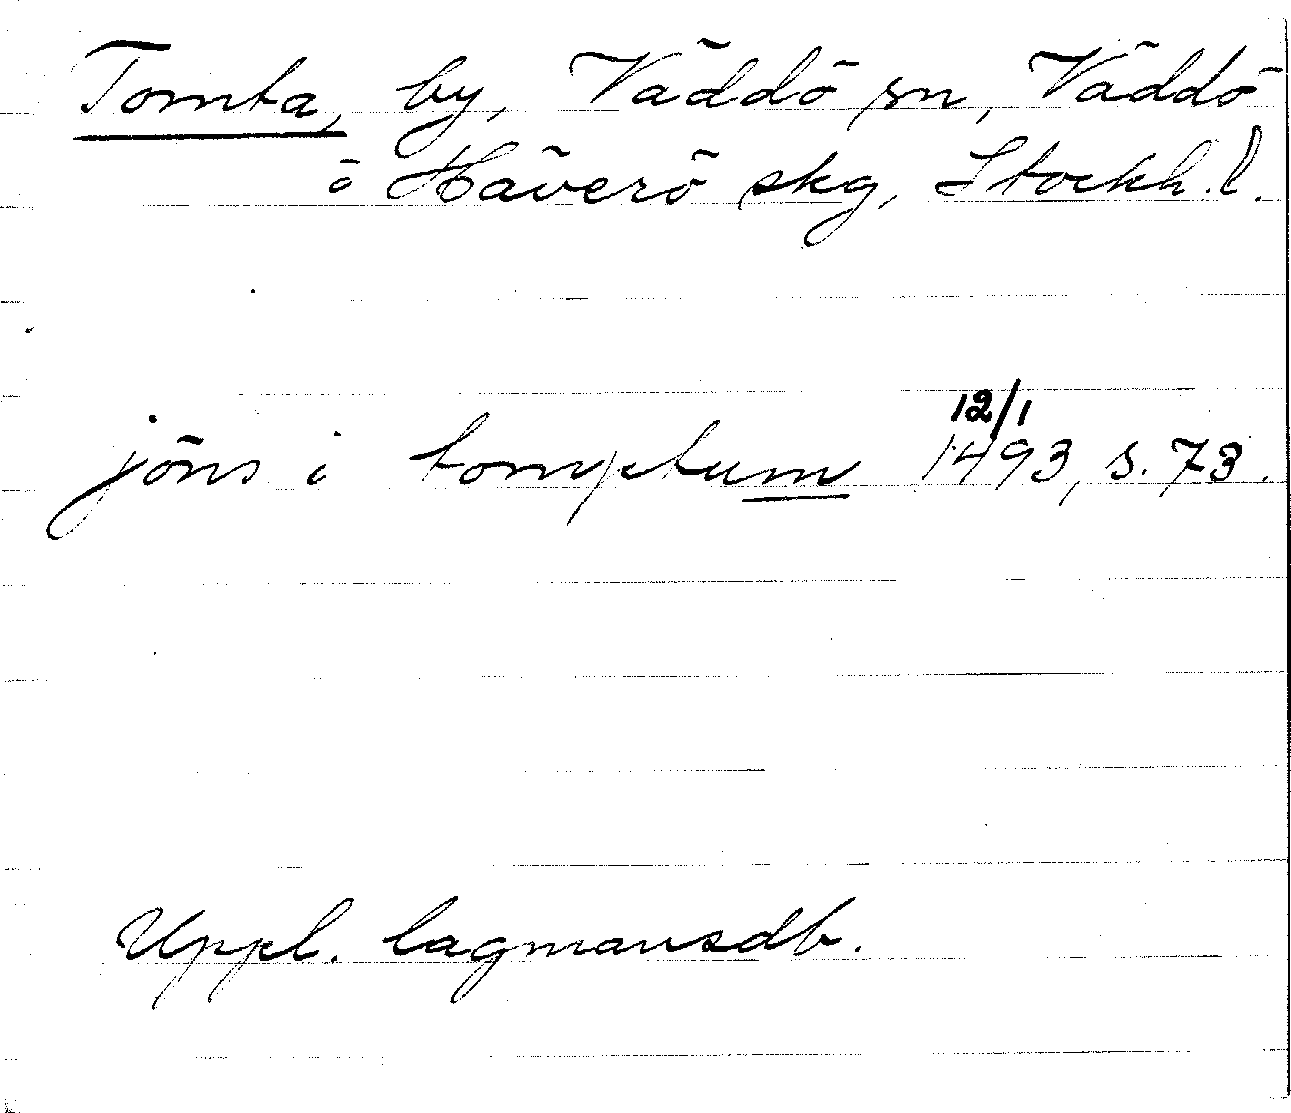 Tomta, by, Väddö sn, Väddö
o Häverö skg, Stockh. l.
jöns i tomptum 12/1 1493, s. 73.
Uppl. lagmansdb.